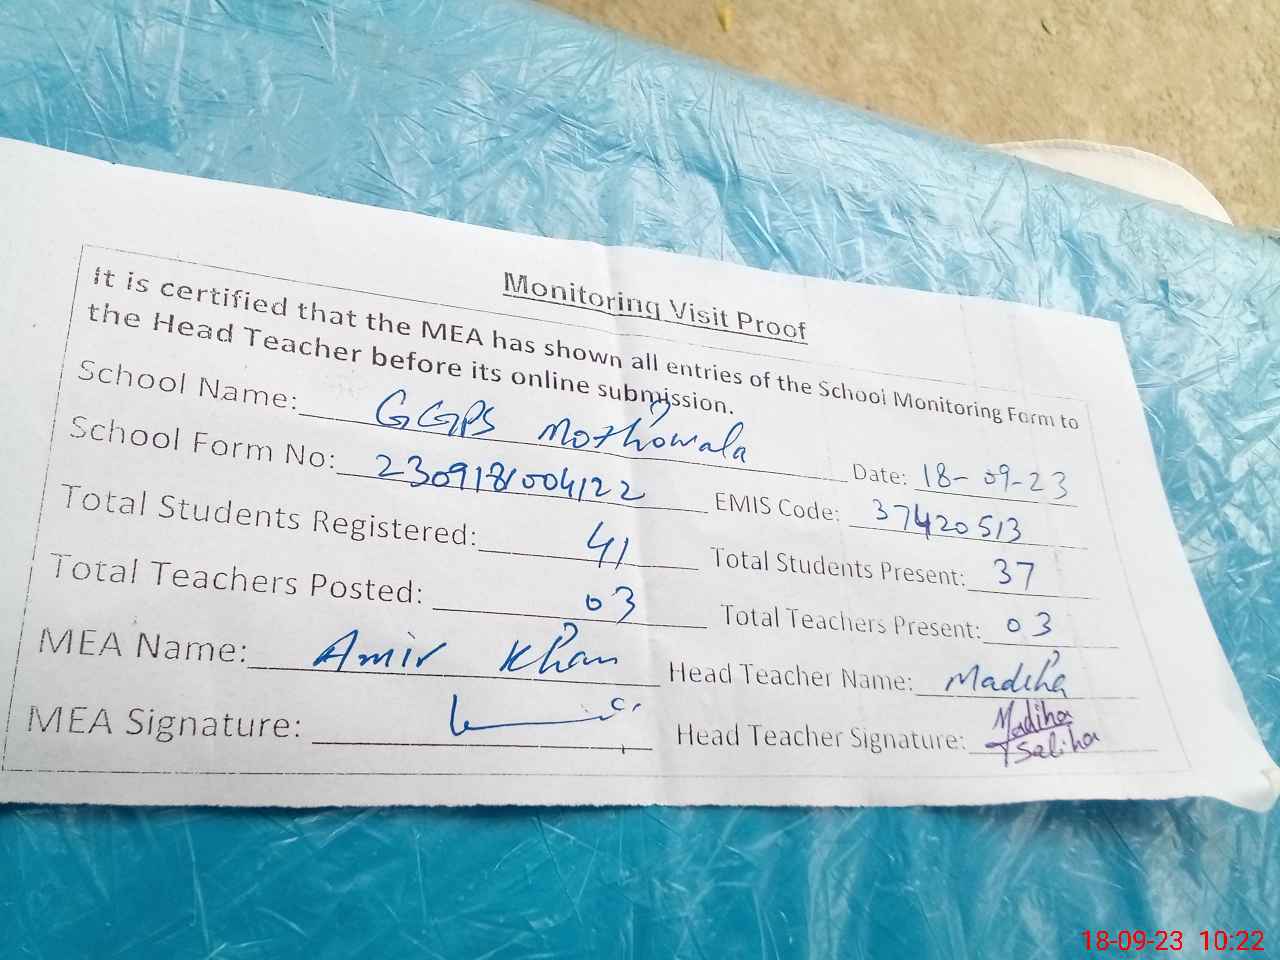 Monitoring Visit Proof
It is certified that the MEA has shown all entries of the School Monitoring Form to
the Head Teacher before its online submission.
School Name: GGPS Mothowala Date: 18-09-23
School Form No: 230918004122 EMIS Code: 37420513
Total Students Registered: 41 Total Students Present: 37
Total Teachers Posted: 03 Total Teachers Present: 03
MEA Name: Amir Khan Head Teacher Name: Madiha
MEA Signature: Head Teacher Signature: Madiha
Saliha
18-09-23 10:22